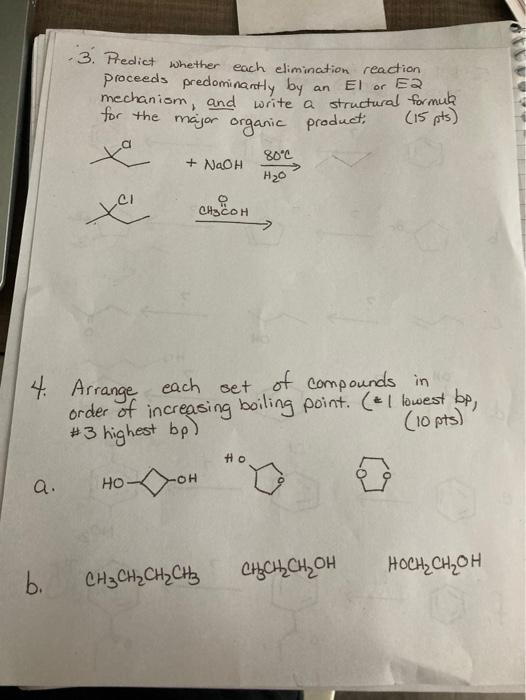 3. Predict whether each elimination reaction
proceeds predominantly by an E1 or E2
mechanism, and write a structural formula
for the major organic product: (15 pts)
Cl
+ NaOH 80°C
H₂O
Cl
O
CH₃COH
4. Arrange each set of compounds in
order of increasing boiling point. (#1 lowest bp,
#3 highest bp) (10 pts)
a. HO OH HO O O O
b. CH₃CH₂CH₂CH₃ CH₃CH₂CH₂OH HOCH₂CH₂OH